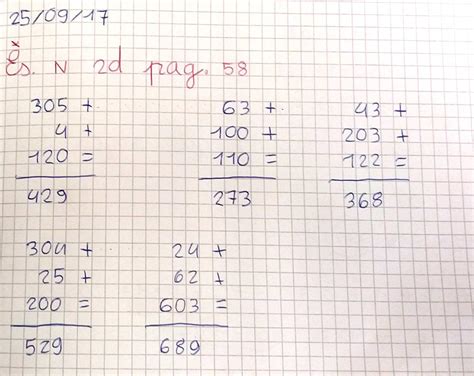 25/09/17
Es. N 2d pag. 58
305 + 63 + 43 +
4 + 100 + 203 +
120 = 110 = 122 =
429 273 368
304 + 24 +
25 + 62 +
200 = 603 =
529 689